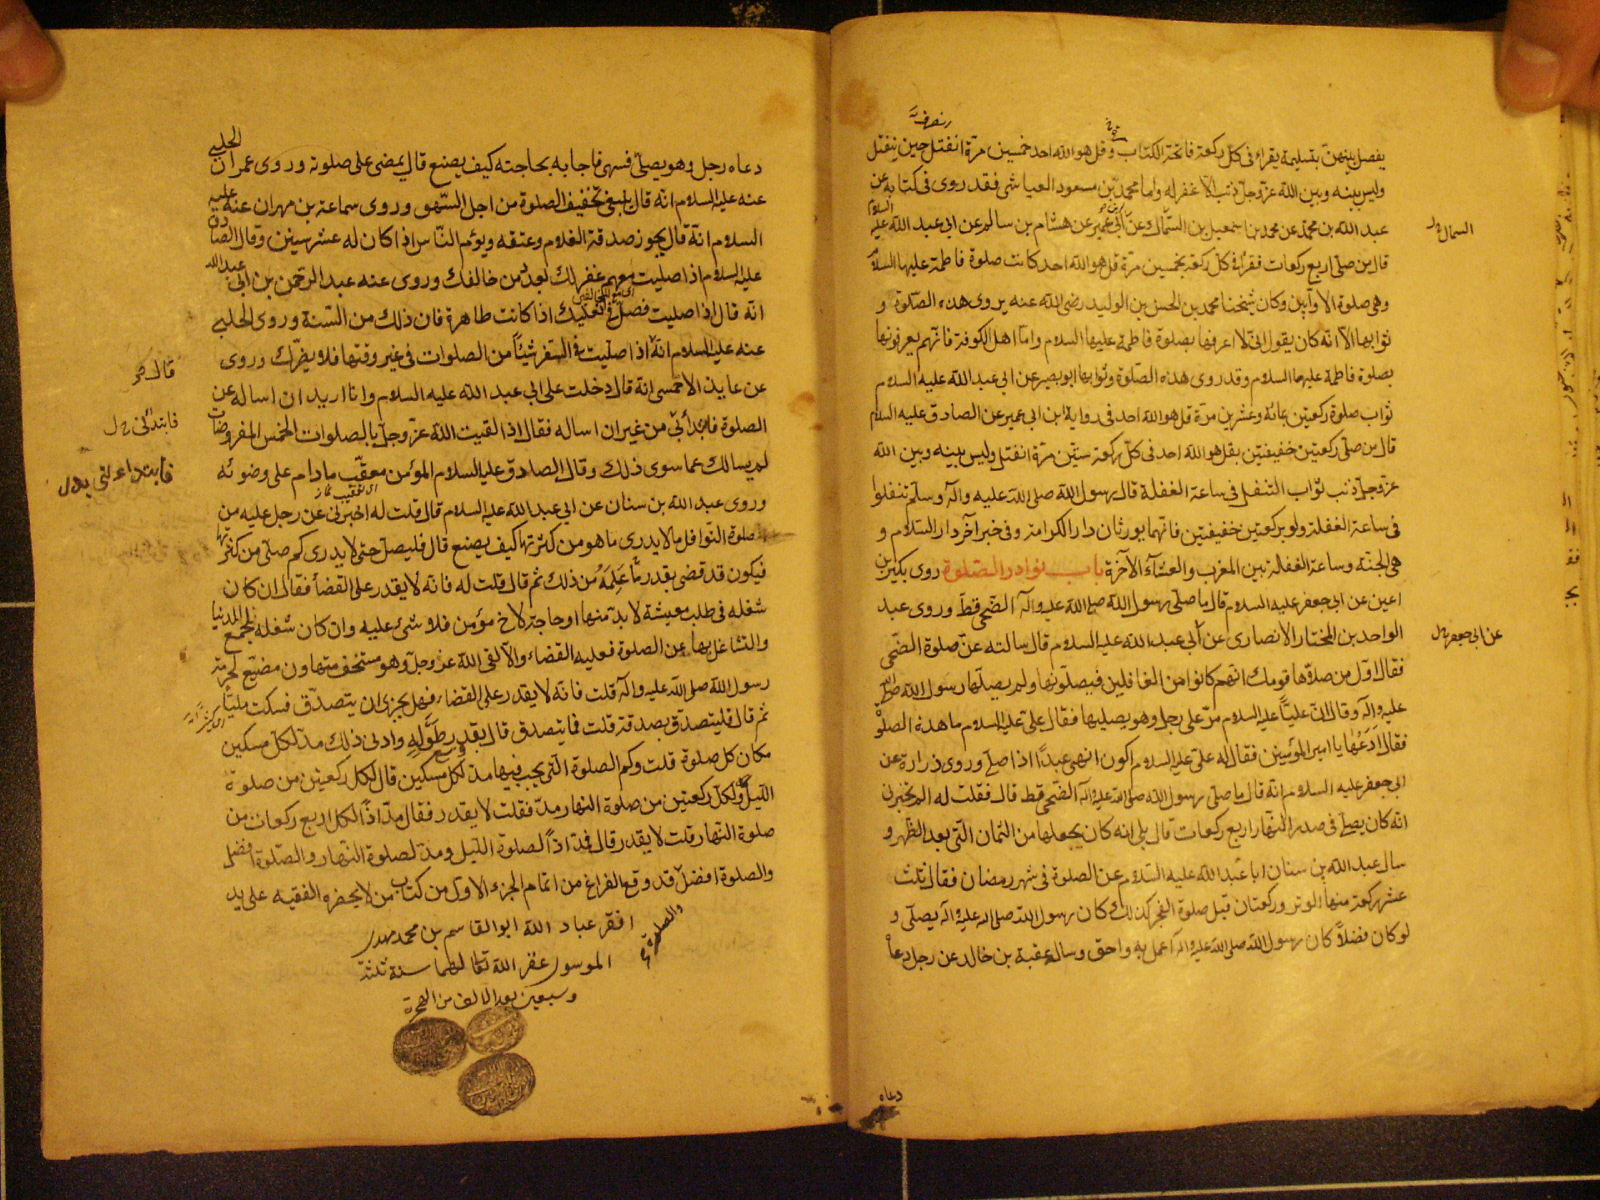 يفصل بينهنّ بتسليمة يقرأ فى كلّ ركعة فاتحة الكتاب وقل هو الله احد خمسين مرّة انفتل حين ينفتل
وليس بينه وبين الله عزّ وجلّ ذنب الا غفر له واما محمد بن مسعود العياشى فقد روى فى كتابه عن
عبد الله بن محمد عن محمد بن اسمعيل بن السمّاك عن ابن ابى عمير عن هشام بن سالم عن ابى عبد الله عليه السلام
السمال
قال من صلّى اربع ركعات فقرأ فى كلّ ركعة بخمسين مرّة قل هو الله احد كانت صلوة فاطمة عليها السلام
وهى صلوة الاوابين وكان شيخنا محمد بن الحسن بن الوليد رضى الله عنه يروى هذه الصّلوة و
ثوابها الّا انّه كان يقول انى لا اعرفها بصلوة فاطمة عليها السلام وامّا اهل الكوفة فانّهم يعرفونها
بصلوة فاطمة عليها السلام وقد روى هذه الصّلوة وثوابها ابو بصير عن ابى عبد الله عليه السلام
ثواب صلوة ركعتين بمائة وعشرين مرّة قل هو الله احد فى رواية ابن ابى عمير عن الصادق عليه السلام
قال من صلّى ركعتين خفيفتين بقل هو الله احد فى كلّ ركعة ستّين مرّة انفتل وليس بينه وبين الله
عزّ وجلّ ذنب ثواب التنفل فى ساعة الغفلة قال رسول الله صلى الله عليه وآله وسلم تنفلوا
فى ساعة الغفلة ولو بركعتين خفيفتين فانّهما يورثان دار الكرامة وفى خبر آخر دار السّلام و
هى الجنّة وساعة الغفلة بين المغرب والعشآء الآخرة باب نوادر الصّلوة روى بكير بن
اعين عن ابى جعفر عليه السلام قال ما صلّى رسول الله صلى الله عليه وآله الضّحى قطّ وروى عبد
الواحد بن المختار الانصارى عن أبى عبد الله عليه السلام قال سالته عن صلوة الضّحى
عن ابى جعفر
فقال اوّل من صلّاها قومك انّهم كانوا من الغافلين فيصلّونها ولم يصلّها رسول الله صلى الله
عليه وآله وقال انّ عليّاً عليه السلام مرّ على رجل وهو يصليها فقال علىّ عليه السلام ما هذه الصلوة
فقال ادَعُها يا امير المؤمنين فقال له علىّ عليه السلام اكون انهى عبدًا اذا صلّى وروى زرارة عن
ابى جعفر عليه السلام انّه قال ما صلّى رسول الله صلى الله عليه وآله الضّحى قط قال فقلت له الم تخبرنى
انّه كان يصلّى فى صدر النّهار اربع ركعات قال بلى انه كان يجعلها من الثمان التّى بعد الظّهر و
سال عبد الله بن سنان ابا عبد الله عليه السّلام عن الصلوة فى شهر رمضان فقال ثلث
عشر ركعة منها الوتر وركعتان قبل صلوة الفجر كذلك كان رسول الله صلى الله عليه وآله يصلّى و
لو كان فضلاً كان رسول الله صلى الله عليه وآله اعمل به واحق وساله عقبة بن خالد عن رجل دعاه
دعاه
دعاه رجل وهو يصلّى فسهى فاجابه بحاجته كيف يصنع قال يمضى على صلوته وروى عمران الحلبى
عنه عليه السلام انّه قال ينبغى تخفيف الصلوة من اجل السّهو وروى سماعة بن مهران عنه عليه
السلام انّه قال يجوز صدقة الغلام وعتقه ويؤم النّاس اذا كان له عشر سنين وقال الصّادق
عليه السلام اذا صليت معهم غفر لك بعدد من خالفك وروى عنه عبد الرحمن بن ابى عبد الله
انّه قال اذا صليت فصلّ فى نعليك اذا كانت طاهرة فان ذلك من السّنة وروى الحلبى
عنه عليه السلام انّه اذا صلّيت فى السّفر شيئاً من الصلوات فى غير وقتها فلا يضرّك وروى
عن عايذ الاحمسى انّه قال دخلت على ابى عبد الله عليه السلام وانا اريد ان اساله عن
قال
الصلوة فابتدأنى من غير ان اساله فقال اذا لقيت الله عزّ وجلّ بالصلوات الخمس المفروضات
فابتدئنى
لم يسالك عمّا سوى ذلك وقال الصادق عليه السلام المؤمن معقّب مادام على وضوئه
وروى عبد الله بن سنان عن ابى عبد الله عليه السلام قال قلت له اخبرنى عن رجل عليه من
صلوة النّوافل مالا يدرى ما هو من كثرتها كيف يصنع قال فليصلّ حتى لا يدرى كم صلّى من كثرتها
فيكون قد قضى بقدر ما عَلِمَهُ من ذلك ثم قال قلت له فانّه لا يقدر على القضأ فقال ان كان
شغله فى طلب معيشة لا بدّ منها او حاجة لاخ مؤمن فلا شئ عليه وان كان شغله لجمع الدنيا
والتّشاغل بها عن الصلوة فعليه القضاء والّا لقى الله عزّ وجلّ وهو مستخف متهاون مضيّع لحرمة
رسول الله صلى الله عليه وآله قلت فانّه لا يقدر على القضاء فهل يجزى ان يتصدّق فسكت مليّاً
ثم قال فليتصدق بصدقة قلت فما يتصدق قال بقدر طَوْلِهِ وادنى ذلك مدّ لكلّ مسكين
مكان كل صلوة قلت وكم الصلوة الّتى يجب فيها مدّ لكلّ مسكين قال لكلّ ركعتين من صلوة
اللّيل ولكلّ ركعتين من صلوة النهار مدّ فقلت لا يقدر فقال مدّ اذًا لكل اربع ركعات من
صلوة النّهار قلت لا يقدر قال فمدّ اذًا لصلوة اللّيل ومدّ لصلوة النّهار والصّلوة افضل
والصلوة افضل قد وقع الفراغ من اتمام الجزء الاوّل من كتاب من لا يحضره الفقيه على يد
افقر عباد الله ابو القاسم بن محمد مهدى
الموسوى غفر الله تعالى لهما سنة ثلثة
وسبعين بعد الالف من الهجرة